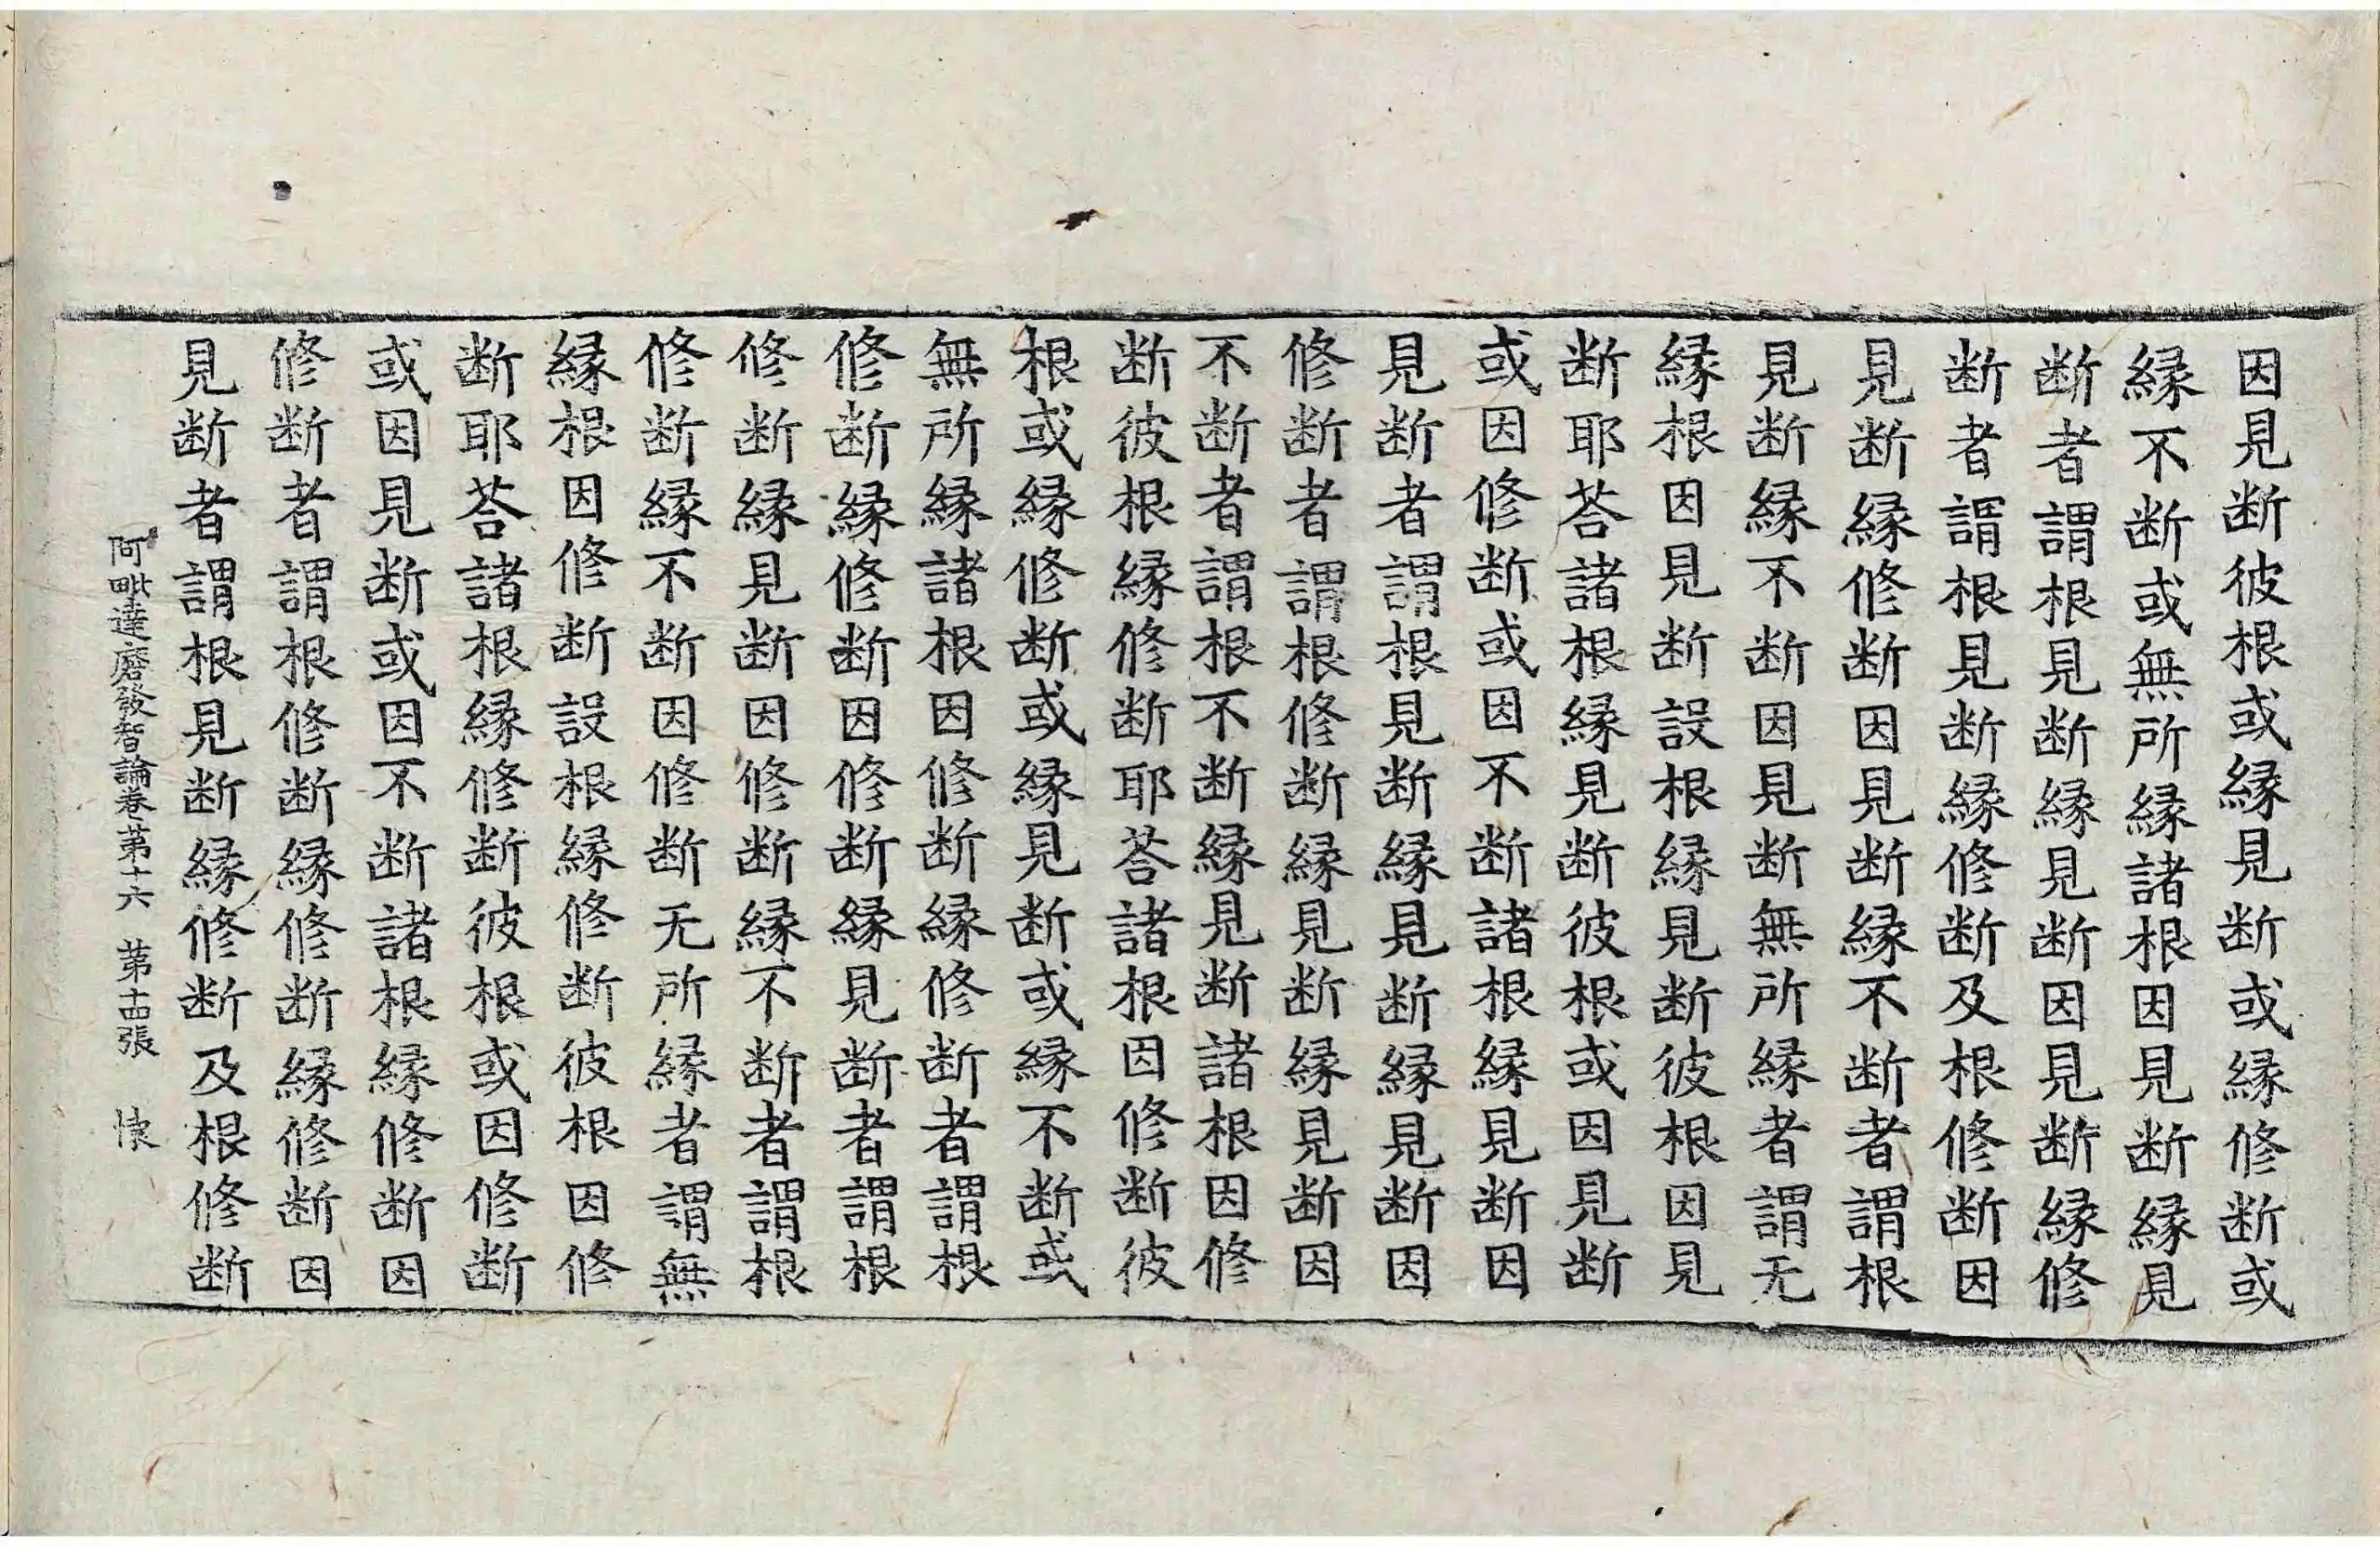 因見断彼根或縁見断或縁修断或
縁不断或無所縁諸根因見断縁見
断者謂根見断縁見断因見断縁修
断者謂根見断縁修断及根修断因
見断縁修断因見断縁不断者謂根
見断縁不断因見断無所縁者謂无
縁根因見断設根縁見断彼根因見
断耶荅諸根縁見断彼根或因見断
或因修断或因不断諸根縁見断因
見断者謂根見断縁見断縁見断因
修断者謂根修断縁見断縁見断因
不断者謂根不断縁見断諸根因修
断彼根縁修断耶荅諸根因修断彼
根或縁修断或縁見断或縁不断或
無所縁諸根因修断縁修断者謂根
修断縁修断因修断縁見断者謂根
修断縁見断因修断縁不断者謂根
修断縁不断因修断无所縁者謂無
縁根因修断設根縁修断彼根因修
断耶荅諸根縁修断彼根或因修断
或因見断或因不断諸根縁修断因
修断者謂根修断縁修断縁修断因
見断者謂根見断縁修断及根修断
阿毗達磨發智論卷苐十六 苐十四張